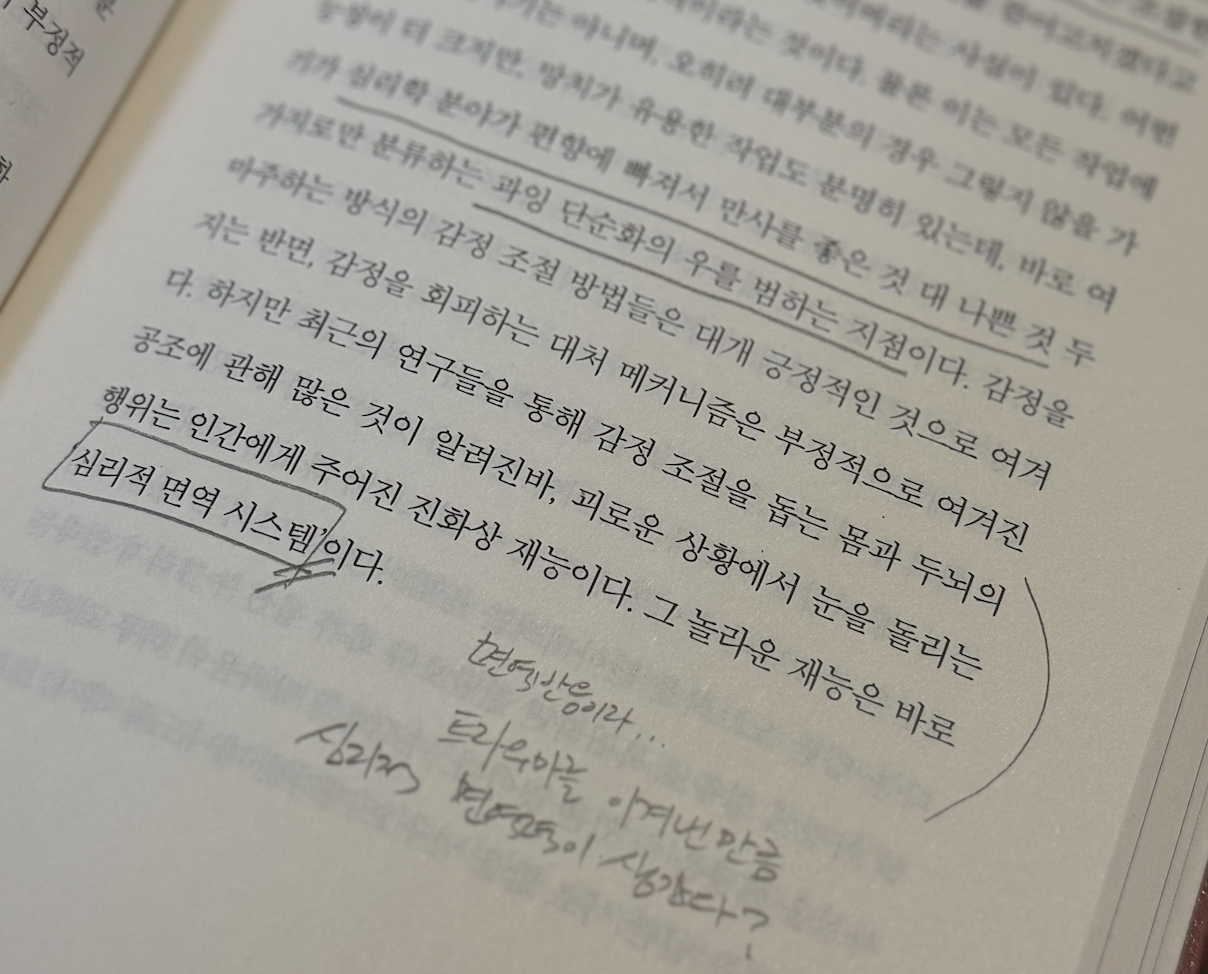 부정적
화
조절한
를 뜯어고치겠다고
이라는 사실이 있다. 어떤
이라는 것이다. 물론 이는 모든 작업에
기는 아니며, 오히려 대부분의 경우 그렇지 않을 가
능성이 더 크지만, 망치가 유용한 작업도 분명히 있는데, 바로 여
기가 심리학 분야가 편향에 빠져서 만사를 좋은 것 대 나쁜 것 두
가지로만 분류하는 과잉 단순화의 우를 범하는 지점이다. 감정을
마주하는 방식의 감정 조절 방법들은 대개 긍정적인 것으로 여겨
지는 반면, 감정을 회피하는 대처 메커니즘은 부정적으로 여겨진
다. 하지만 최근의 연구들을 통해 감정 조절을 돕는 몸과 두뇌의
공조에 관해 많은 것이 알려진바, 괴로운 상황에서 눈을 돌리는
행위는 인간에게 주어진 진화상 재능이다. 그 놀라운 재능은 바로
심리적 면역 시스템’이다.
면역반응이라...
트라우마를 이겨낸 만큼
심리적 면역력이 생긴다?